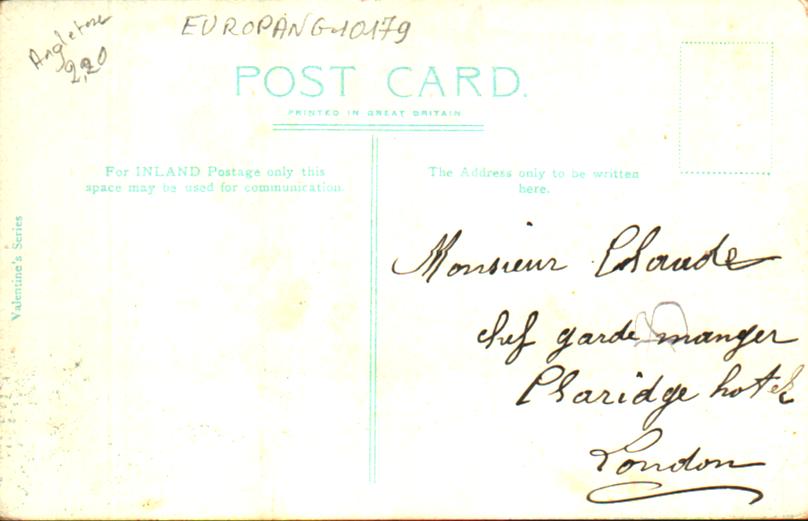 Angleterre
2,20
EUROPANG10179
POST CARD.
PRINTED IN GREAT BRITAIN
For INLAND Postage only this
space may be used for communication.
The Address only to be written
here.
Valentine's Series
Monsieur Claude
chef garde manger
Claridge hotel
London